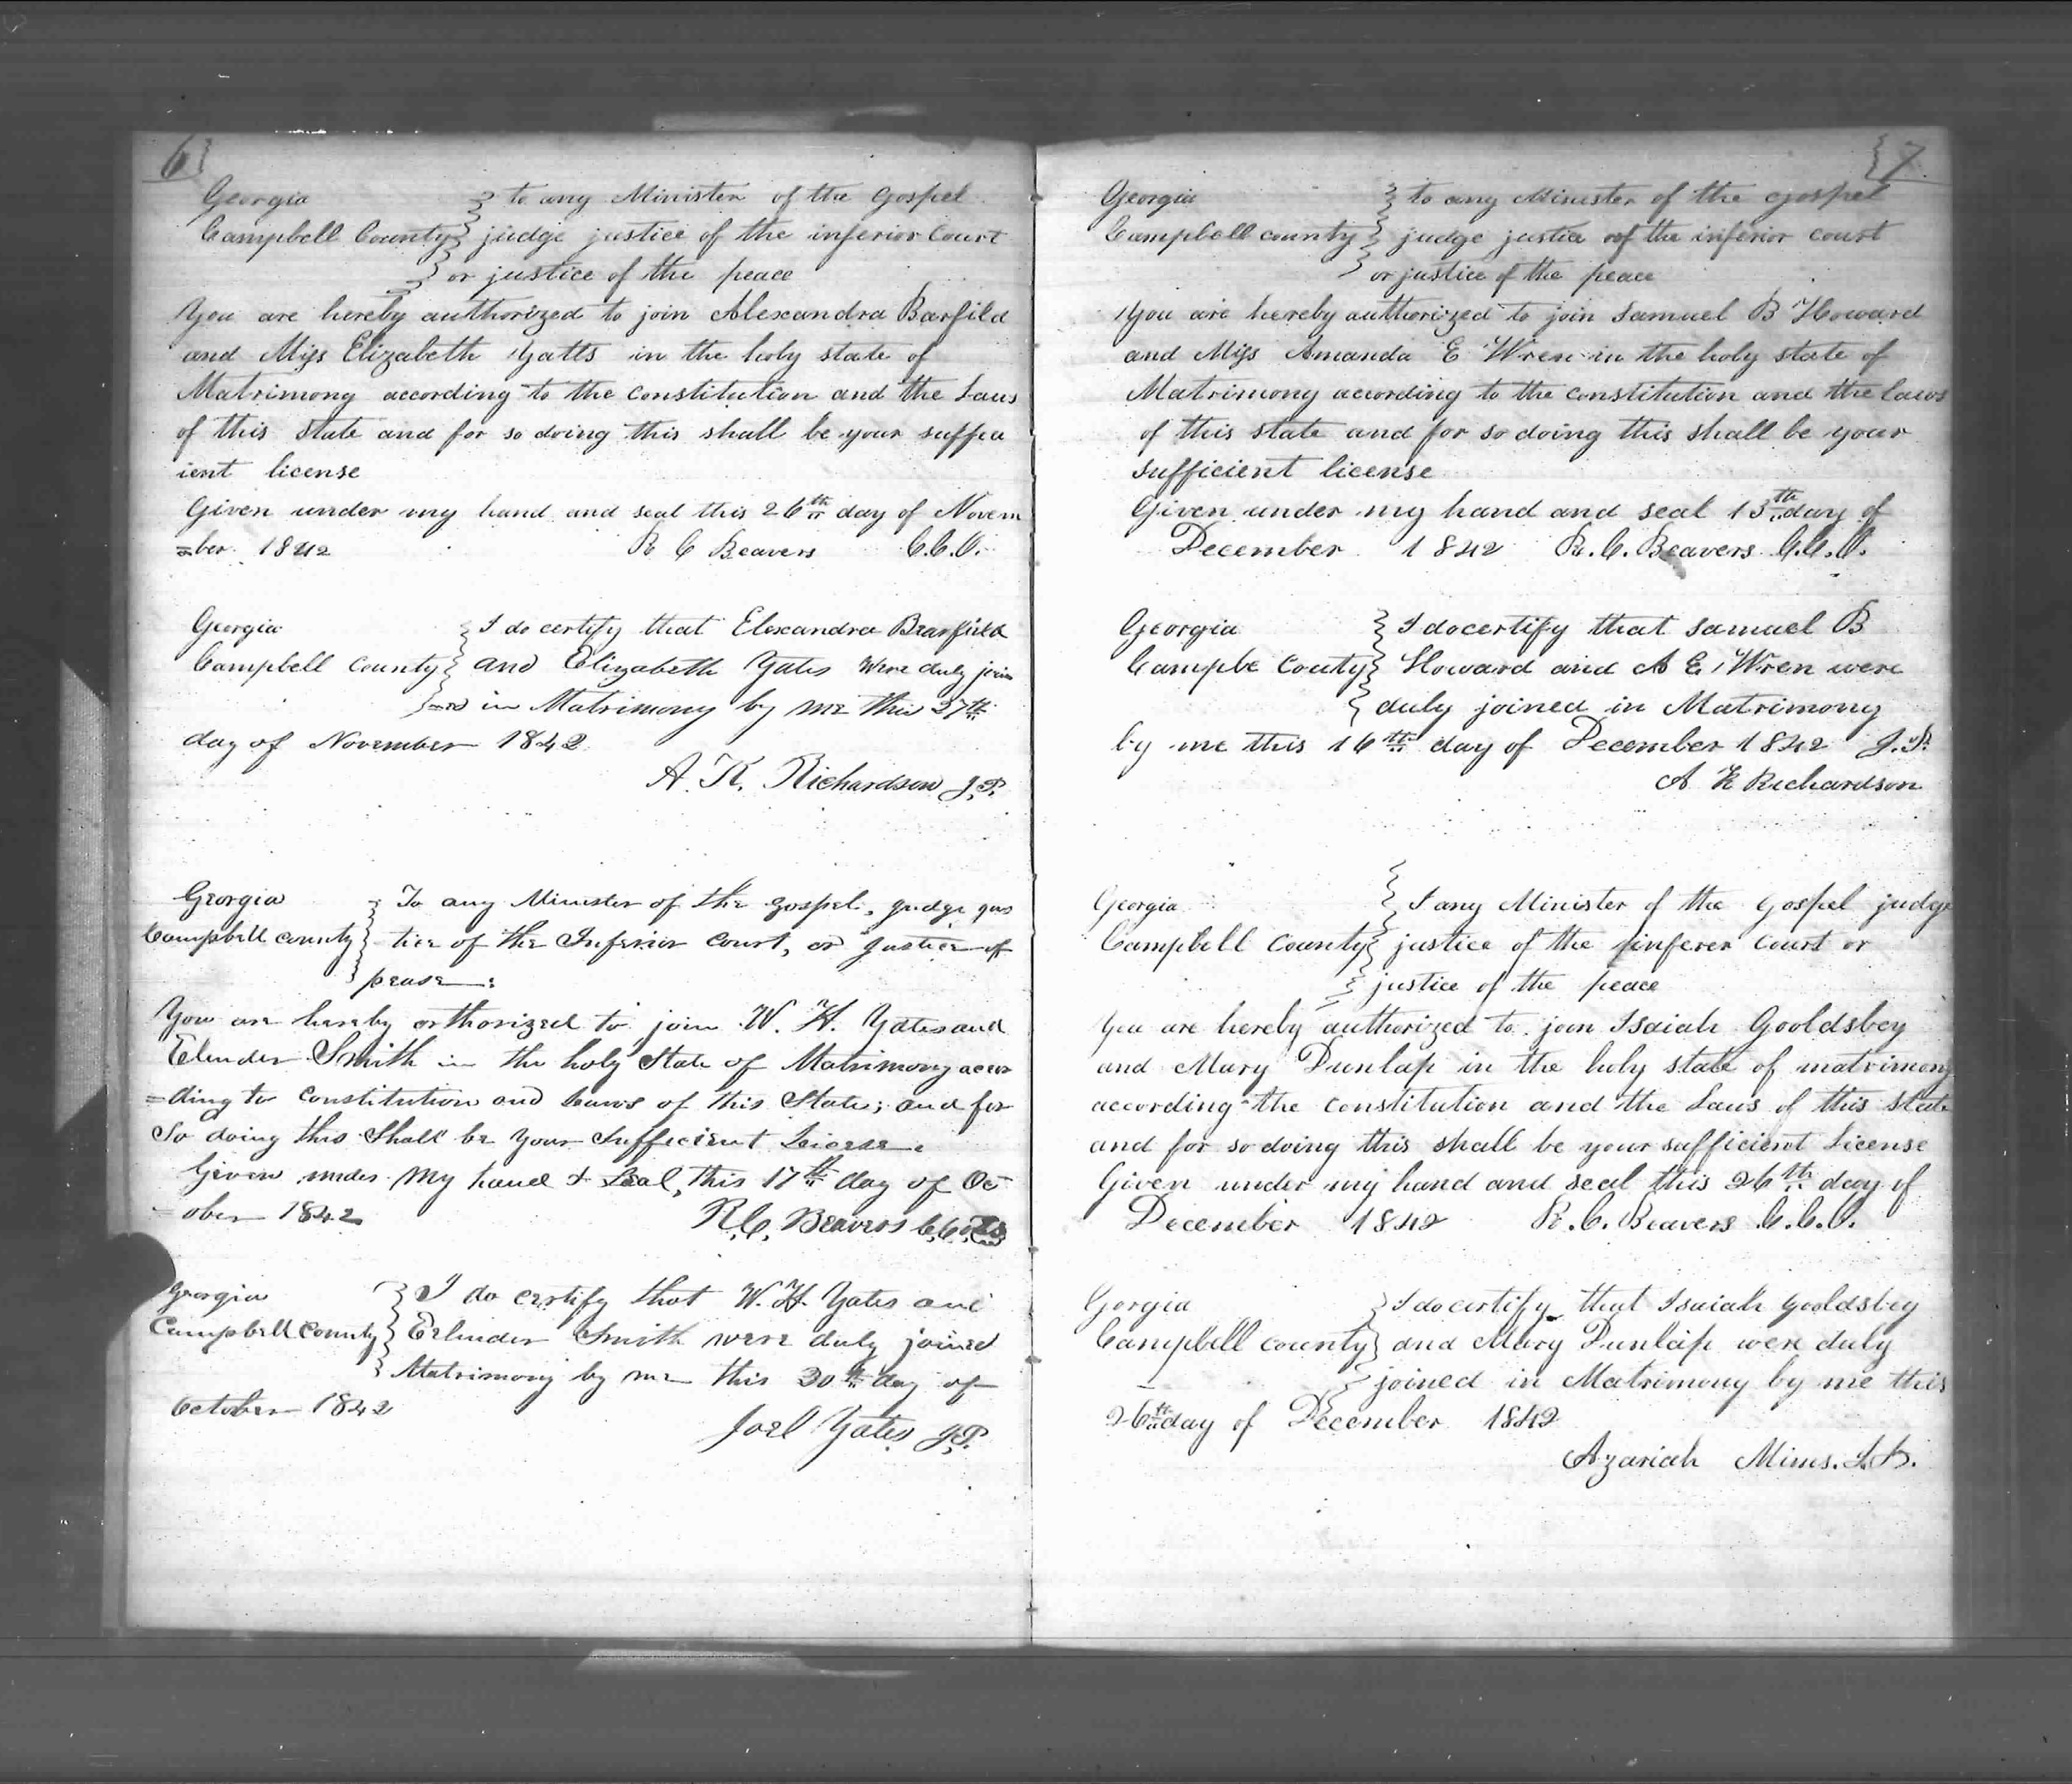 6
Georgia to any Minister of the Gospel
Campbell County judge justice of the inferior Court
or justice of the peace
You are hereby authorized to join Alexandra Barfild
and Miss Elizabeth Yatts in the holy state of
Matrimony according to the Constitution and the Laws
of this state and for so doing this shall be your suffic
ient license
Given under my hand and seal this 26th day of Novem
=ber 1842 R C Beavers C.C.O.
Georgia I do certify that Elexandra Bearfield
Campbell County and Elizabeth Yates Were duly join
=ed in Matrimony by me this 27th
day of November 1842
A. K. Richardson J.P.
Georgia To any Minister of the gospel, judge jus
Campbell county tice of the Inferior Court, or Justice of
pease:
You are hereby orthorized to join W. H. Yates and
Elender Smith in the holy State of Matrimony accor
=ding to Constitution and Laws of this State; and for
So doing this Shall be your Sufficient Licese.
Given under My hand & Seal, this 17th day of Oc
=ober 1842 R.C. Beavers C.C.O. LS
Georgia I do certify that W. H. Yates and
Campbell County Eelender Smith were duly joined
Matrimony by me this 30th day of
October 1842
Joel Yates J.P.
7
Georgia to any Minister of the Gospel
Campbell county judge justice of the inferior court
or justice of the peace
You are hereby authorized to join Samuel B Howard
and Miss Amanda E Wren in the holy state of
Matrimony according to the constitution and the laws
of this state and for so doing this shall be your
sufficient license
Given under my hand and seal 13th day of
December 1842 R. C. Beavers C.C.O.
Georgia I do certify that Samuel B
Campbe Couty Howard and A E Wren were
duly joined in Matrimony
by me this 16th day of December 1842 J.P.
A K Richardson
Georgia T any Minister of the Gospel judge
Campbell County justice of the inferer Court or
justice of the peace
You are hereby authorized to join Isaiah Gooldsbey
and Mary Dunlap in the holy state of matrimony
according the constitution and the Laws of this state
and for so doing this shall be your sufficient License
Given under my hand and seal this 26th day of
December 1842 R. C. Beavers C.C.O.
Gorgia I do certify that Isaiah Gooldsbey
Campbell county and Mary Dunlap were duly
joined in Matrimony by me this
26th day of December 1842
Azariah Mims. J.P.